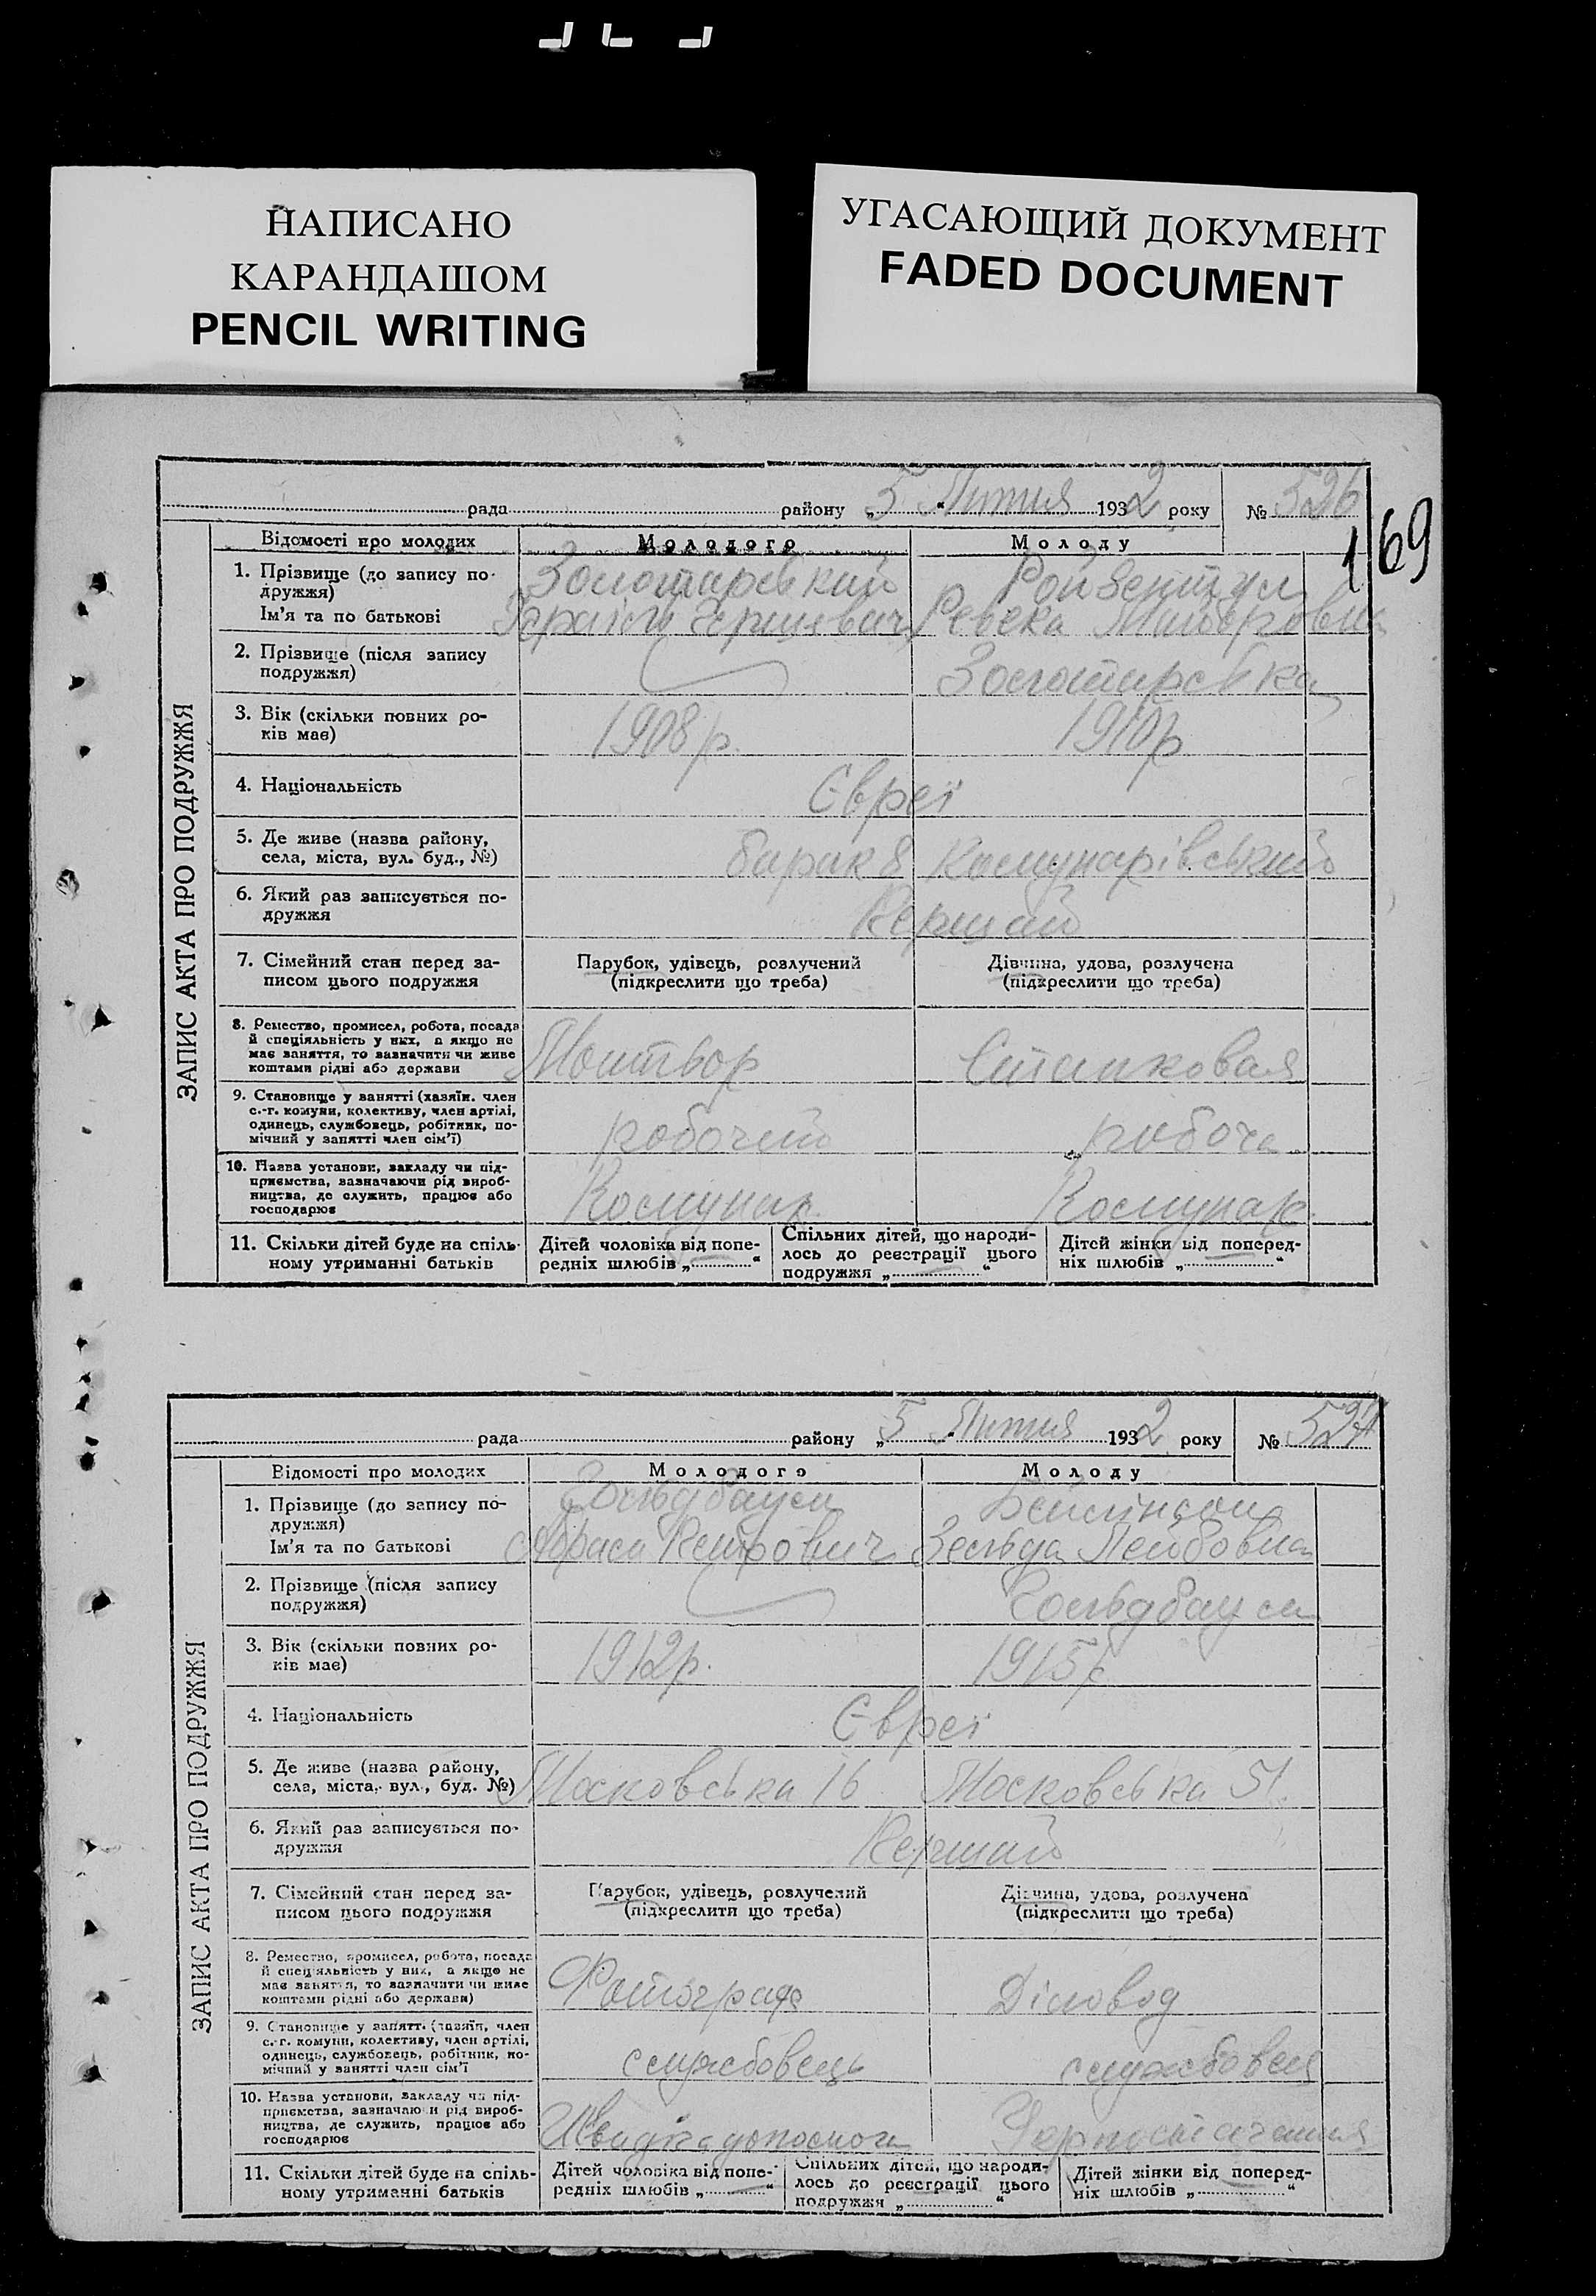 НАПИСАНО
КАРАНДАШОМ
PENCIL WRITING
УГАСАЮЩИЙ ДОКУМЕНТ
FADED DOCUMENT
169
ЗАПИС АКТА ПРО ПОДРУЖЖЯ
рада району „5“ Лютня 1932 року № 526
Відомості про молодих Молодого Молоду
1. Прізвище (до запису по-
дружжя)
Золотаревский Ройзентул
Ім'я та по батькові Ізраїль Гершевич Ревека Майоровна
2. Прізвище (після запису
подружжя)
Золотарсвка
3. Вік (скільки повних ро-
ків має)
1908 р. 1910 р
4. Національність Євреї
5. Де живе (назва району,
села, міста, вул. буд., №)
барак 8 Комунарівський
6. Який раз записується по-
дружжя
Перший
7. Сімейний стан перед за-
писом цього подружжя
Парубок, удівець, розлучений
(підкреслити що треба)
Дівчина, удова, розлучена
(підкреслити що треба)
8. Ремество, промисел, робота, посада
й спеціяльність у них, а якщо не
має заняття, то зазначити чи живе
коштами рідні або держави
Станковая
9. Становище у занятті (хазяїн, член
с.-г. комуни, колективу, член артілі,
одинець, службовець, робітник, по-
мічний у занятті член сім'ї)
робочий робоча
10. Назва установи, закладу чи під-
приємства, зазначаючи рід вироб-
ництва, де служить, працює або
господарює
Комунар. Комунар.
11. Скільки дітей буде на спіль-
ному утриманні батьків
Дітей чоловіка від попе-
редніх шлюбів „ — “
Спільних дітей, що народи-
лось до реєстрації цього
подружжя „ — “
Дітей жінки від поперед-
ніх шлюбів „ — “
ЗАПИС АКТА ПРО ПОДРУЖЖЯ
рада району „5 Лютня 1932 року № 527
Відомості про молодих Молодого Молоду
1. Прізвище (до запису по-
дружжя)
Гольдбаум
Ім'я та по батькові Абрам Зельда Лейбовна
2. Прізвище (після запису
подружжя)
Гольдбаум
3. Вік (скільки повних ро-
ків має)
1912 р. 1915 р
4. Національність Євреї
5. Де живе (назва району,
села, міста, вул., буд. №)
Московська 16 Московська 51
6. Який раз записується по-
дружжя
Перший
7. Сімейний стан перед за-
писом цього подружжя
Парубок, удівець, розлучений
(підкреслити що треба)
Дівчина, удова, розлучена
(підкреслити що треба)
8. Ремество, промисел, робота, посада
й спеціяльність у них, а якщо не
має заняття, то зазначити чи живе
коштами рідні або держави)
Фотограф Діловод
9. Становище у занятт. (хазяїн, член
с.-г. комуни, колективу, член артілі,
одинець, службовець, робітник, по-
мічний у занятті член сім'ї
службовець службовец
10. Назва установи, закладу чи під-
приємства, зазначаючи рід вироб-
ництва, де служить, працює або
господарює
Швидка допомога
11. Скільки дітей буде на спіль-
ному утриманні батьків
Дітей чоловіка від попе-
редніх шлюбів „ — “
Спільних дітей, що народи-
лось до реєстрації цього
подружжя „ — “
Дітей жінки від поперед-
ніх шлюбів „ — “